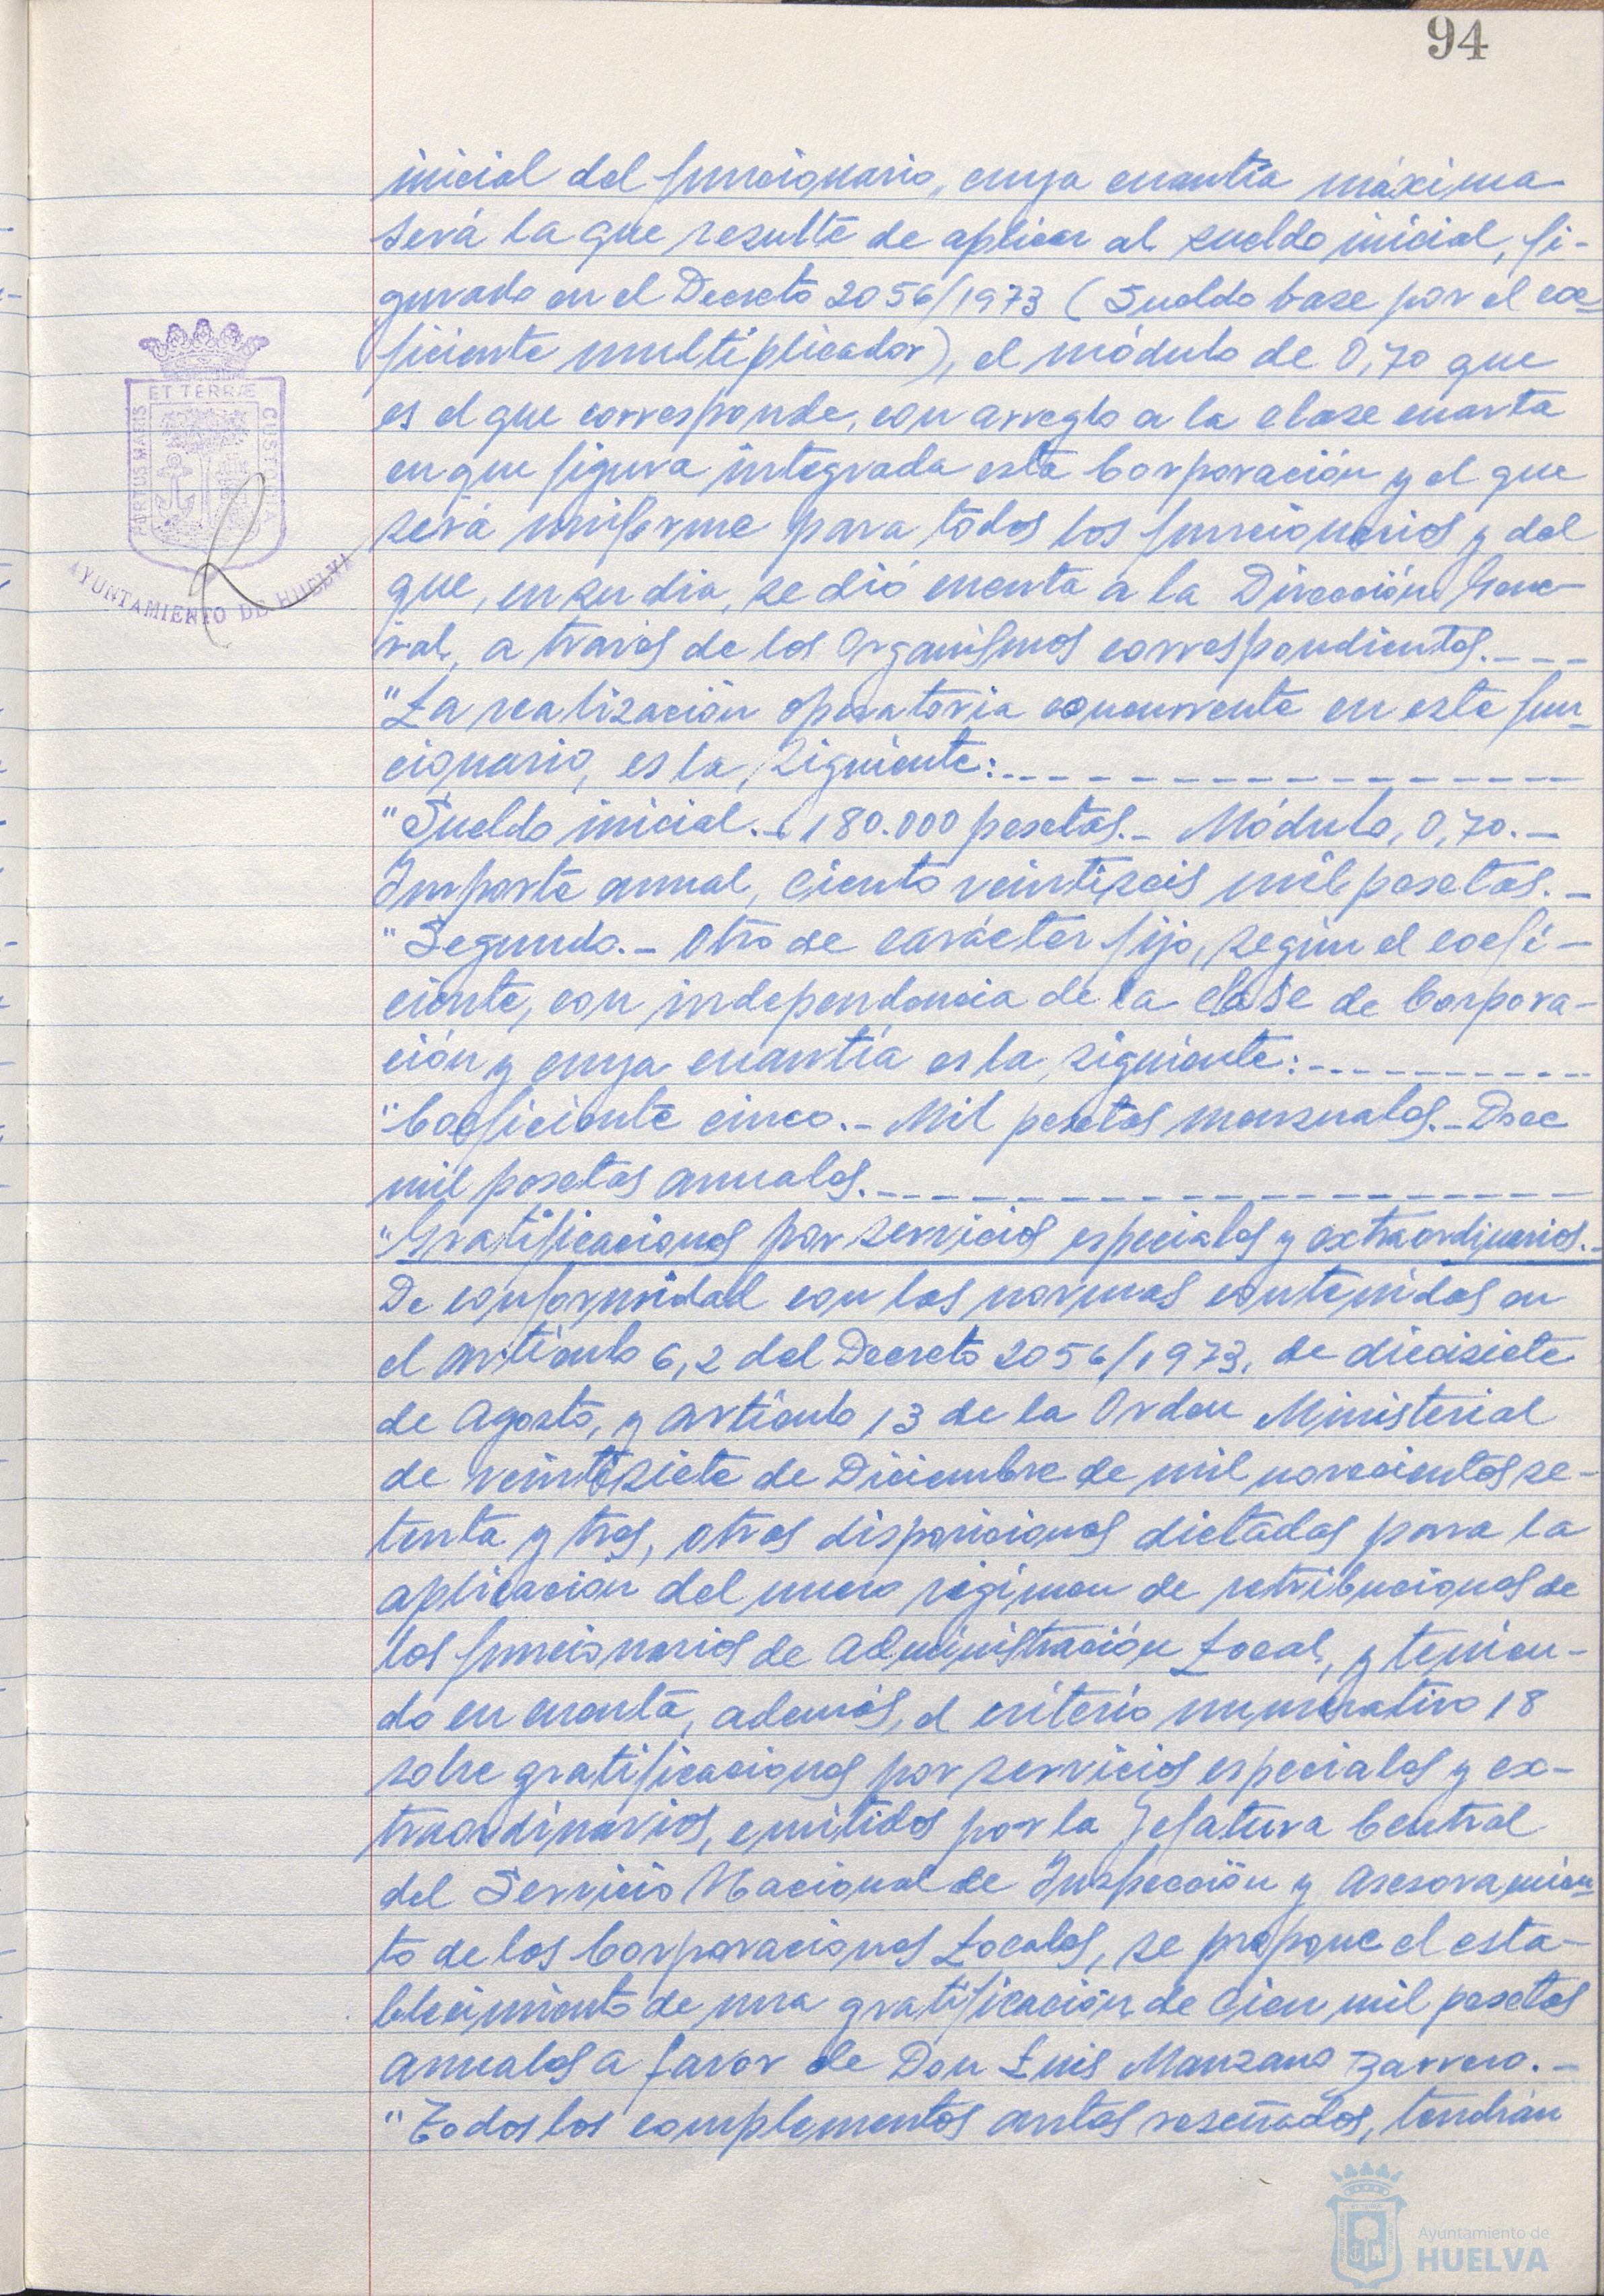 94
inicial del funcionario, cuya cuantía máxima
será la que resulte de aplicar al sueldo inicial, fi-
gurado en el Decreto 2056/1973 (Sueldo base por el coe-
ficiente multiplicador), el módulo de 0,70 que
es el que corresponde, con arreglo a la clase cuarta
en que figura integrada esta Corporación y el que
será uniforme para todos los funcionarios y del
que, en su dia, se dió cuenta a la Dirección Gene-
ral, a través de los Organismos correspondientes.---
"La realización operatoria concurrente en este fun-
cionario, es la siguiente:
"Sueldo inicial.- 180.000 pesetas.- Módulo, 0,70.-
Importe anual, ciento veintiseis mil pesetas.-
"Segundo.- Otro de carácter fijo, según el coefi-
ciente, con independencia de la clase de Corpora-
ción y cuya cuantía es la siguiente:
"Coeficiente cinco.- Mil pesetas mensuales.- Doce
mil pesetas anuales.
"Gratificaciones por servicios especiales y extraordinarios.-
De conformidad con las normas contenidas en
el artículo 6,2 del Decreto 2056/1973, de diecisiete
de Agosto, y artículo 13 de la Orden Ministerial
de veintisiete de Diciembre de mil novecientos se-
tenta y tres, otras disposiciones dictadas para la
aplicación del nuevo régimen de retribuciones de
los funcionarios de Administración Local, y tenien-
do en cuenta, además, el criterio numerativo 18
sobre gratificaciones por servicios especiales y ex-
traordinarios, emitidos por la Jefatura Central
del Servicio Nacional de Inspección y Asesoramien-
to de las Corporaciones Locales, se propone el esta-
blecimiento de una gratificación de cien mil pesetas
anuales a favor de Don Luis Manzano Barrero.-
"Todos los complementos antes reseñados, tendrán
PORTUS MARIS
ET TERRÆ
CUSTODIA
AYUNTAMIENTO DE HUELVA
Ayuntamiento de
HUELVA